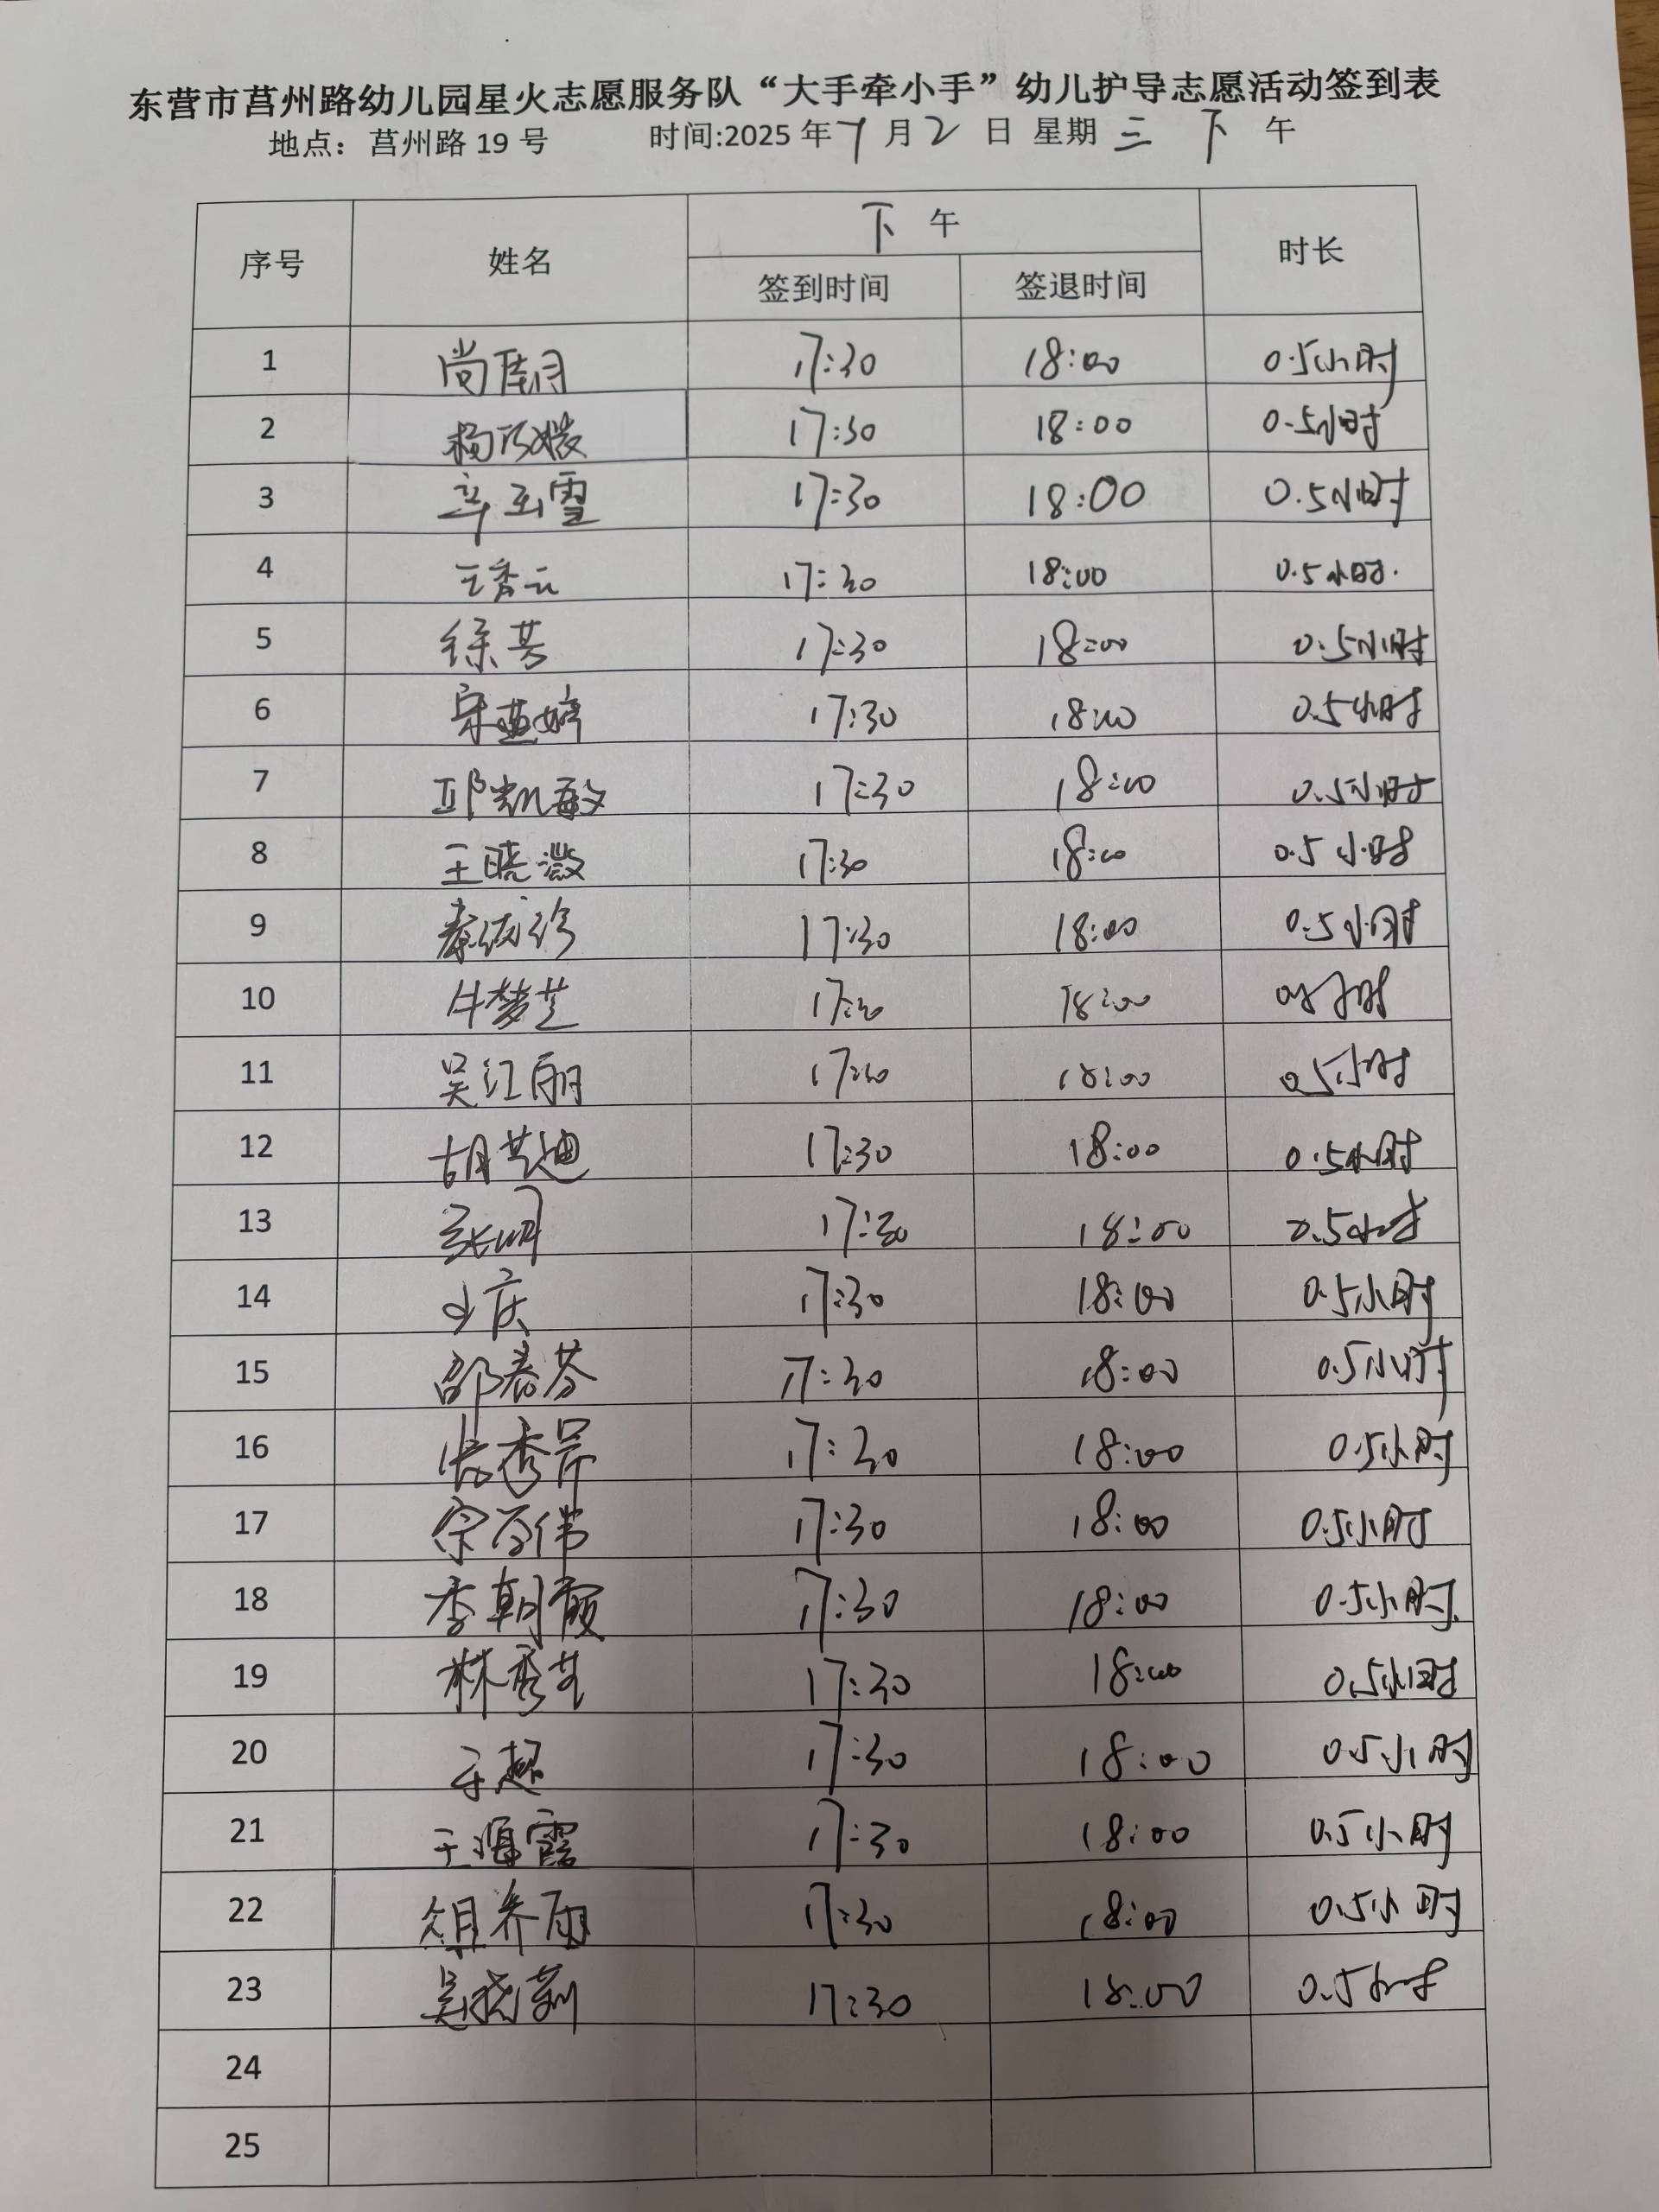 东营市莒州路幼儿园星火志愿服务队“大手牵小手”幼儿护导志愿活动签到表
地点：莒州路 19 号 时间:2025 年 7 月 2 日 星期 三 下 午
序号 姓名 下 午 时长
签到时间 签退时间
1 尚 17:30 18:00 0.5小时
2 杨 17:30 18:00 0.5小时
3 辛玉雪 17:30 18:00 0.5小时
4 王秀云 17:30 18:00 0.5小时.
5 徐芸 17:30 18:00 0.5小时
6 宋燕婷 17:30 18:00 0.5小时
7 邱凯敏 17:30 18:00 0.5小时
8 王晓薇 17:30 18:00 0.5小时
9 秦 17:30 18:00 0.5小时
10 牛梦芝 17:30 18:00 0.5小时
11 吴江丽 17:30 18:00 0.5小时
12 胡芸迪 17:30 18:00 0.5小时
13 张明 17:30 18:00 0.5小时
14 庆 17:30 18:00 0.5小时
15 邵春芬 17:30 18:00 0.5小时
16 张秀芹 17:30 18:00 0.5小时
17 宗 伟 17:30 18:00 0.5小时
18 李朝霞 17:30 18:00 0.5小时.
19 林秀芝 17:30 18:00 0.5小时
20 于超 17:30 18:00 0.5小时
21 王海霞 17:30 18:00 0.5小时
22 俎乔雨 17:30 18:00 0.5小时
23 吴晓莉 17:30 18:00 0.5小时
24
25